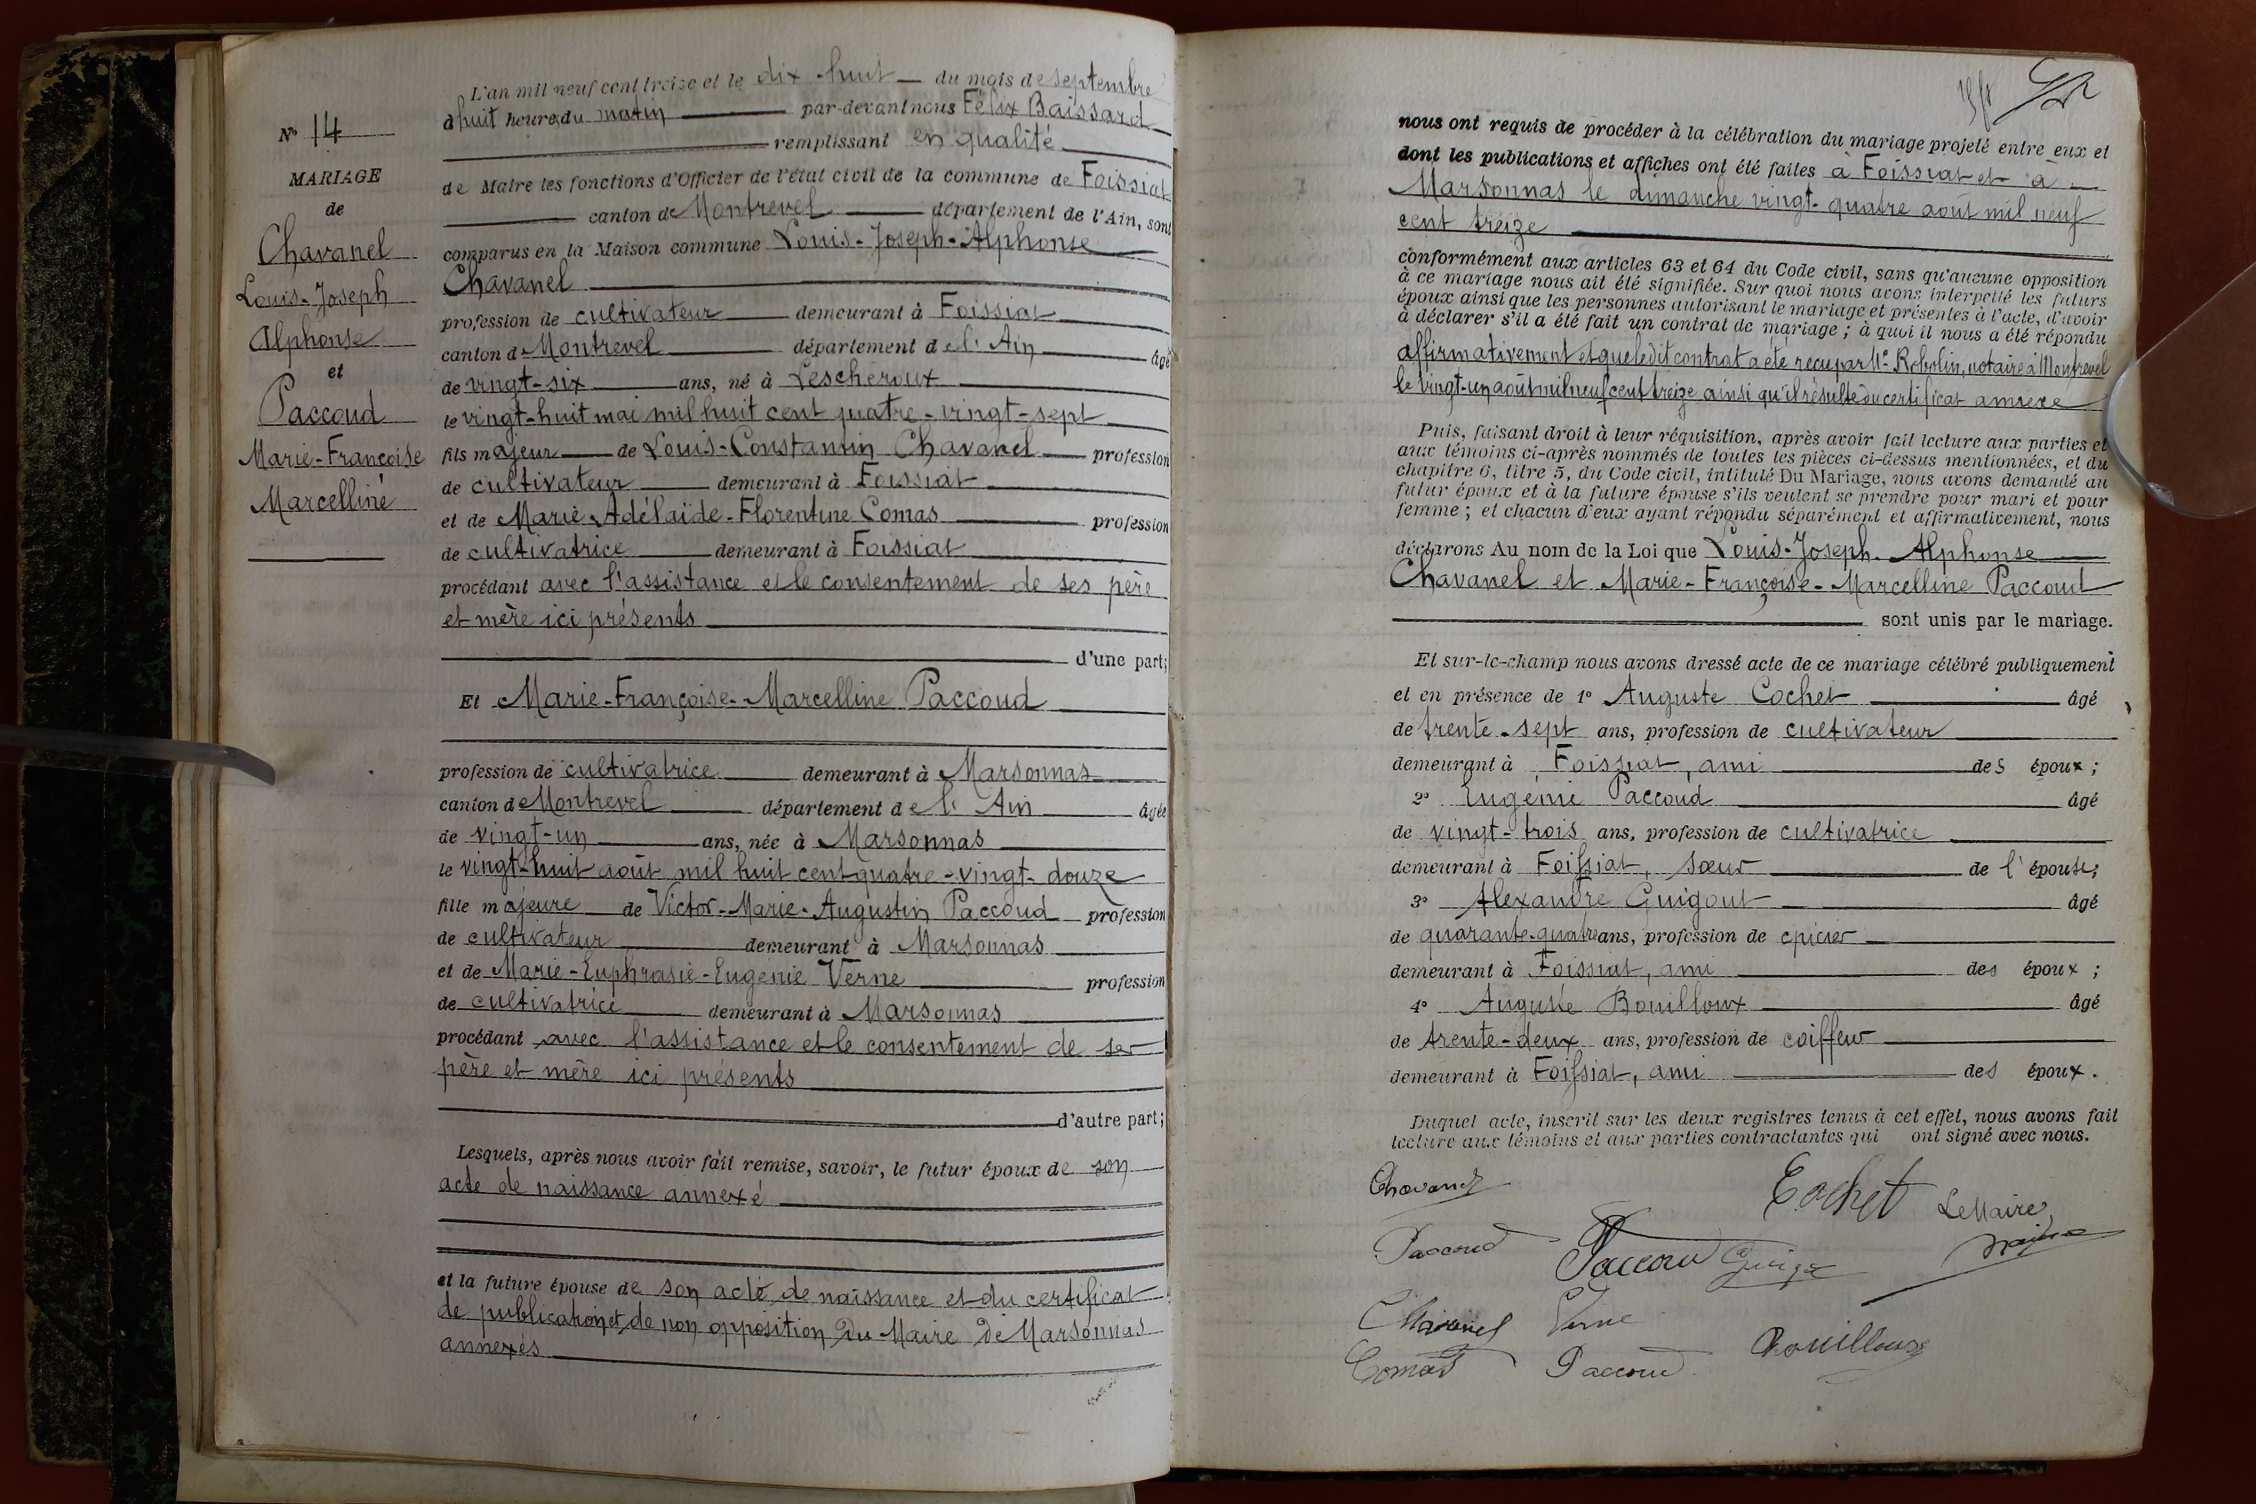 N° 14
MARIAGE
de
Chavanel
Louis-Joseph
Alphonse
et
Paccoud
Marie-Françoise
Marcelline
L'an mil neuf cent treize et le dix-huit du mois de septembre
à huit heures du matin par-devant nous Félix Baissard
remplissant en qualité
de Maire les fonctions d'Officier de l'état civil de la commune de Foissiat
canton de Montrevel département de l'Ain, sont
comparus en la Maison commune Louis-Joseph-Alphonse
Chavanel
profession de cultivateur demeurant à Foissiat
canton de Montrevel département de l'Ain âgé
de vingt-six ans, né à Lescheroux
le vingt-huit mai mil huit cent quatre-vingt-sept
fils majeur de Louis-Constantin Chavanel profession
de cultivateur demeurant à Foissiat
et de Marie Adélaïde-Florentine Comas profession
de cultivatrice demeurant à Foissiat
procédant avec l'assistance et le consentement de ses père
et mère ici présents
d'une part;
Et Marie-Françoise-Marcelline Paccoud
profession de cultivatrice demeurant à Marsonnas
canton de Montrevel département de l'Ain âgée
de vingt-un ans, née à Marsonnas
le vingt-huit août mil huit cent quatre-vingt-douze
fille majeure de Victor-Marie-Augustin Paccoud profession
de cultivateur demeurant à Marsonnas
et de Marie-Euphrasie-Eugénie Verne profession
de cultivatrice demeurant à Marsonnas
procédant avec l'assistance et le consentement de ses
père et mère ici présents
d'autre part;
Lesquels, après nous avoir fait remise, savoir, le futur époux de son
acte de naissance annexé
et la future épouse de son acte de naissance et du certificat
de publication et de non opposition du Maire de Marsonnas
annexés
nous ont requis de procéder à la célébration du mariage projeté entre eux et
dont les publications et affiches ont été faites à Foissiat et à
Marsonnas le dimanche vingt-quatre août mil neuf
cent treize
conformément aux articles 63 et 64 du Code civil, sans qu'aucune opposition
à ce mariage nous ait été signifiée. Sur quoi nous avons interpellé les futurs
époux ainsi que les personnes autorisant le mariage et présentes à l'acte, d'avoir
à déclarer s'il a été fait un contrat de mariage; à quoi il nous a été répondu
affirmativement et que ledit contrat a été reçu par Me Robolin, notaire à Montrevel
le vingt-un août mil neuf cent treize ainsi qu'il résulte du certificat annexé
Puis, faisant droit à leur réquisition, après avoir fait lecture aux parties et
aux témoins ci-après nommés de toutes les pièces ci-dessus mentionnées, et du
chapitre 6, titre 5, du Code civil, intitulé Du Mariage, nous avons demandé au
futur époux et à la future épouse s'ils veulent se prendre pour mari et pour
femme; et chacun d'eux ayant répondu séparément et affirmativement, nous
déclarons Au nom de la Loi que Louis-Joseph-Alphonse
Chavanel et Marie-Françoise-Marcelline Paccoud
sont unis par le mariage.
Et sur-le-champ nous avons dressé acte de ce mariage célébré publiquement
et en présence de 1° Auguste Cochet âgé
de trente-sept ans, profession de cultivateur
demeurant à Foissiat, ami des époux;
2° Eugénie Paccoud âgé
de vingt-trois ans, profession de cultivatrice
demeurant à Foissiat, sœur de l'épouse;
3° Alexandre Guigout âgé
de quarante-quatre ans, profession de épicier
demeurant à Foissiat, ami des époux;
4° Auguste Bouilloux âgé
de trente-deux ans, profession de coiffeur
demeurant à Foissiat, ami des époux.
Duquel acte, inscrit sur les deux registres tenus à cet effet, nous avons fait
lecture aux témoins et aux parties contractantes qui ont signé avec nous.
Chavanel
Cochet Le Maire,
Paccoud Paccoud
Chavanel Verne
Bouilloux
Comas Paccoud